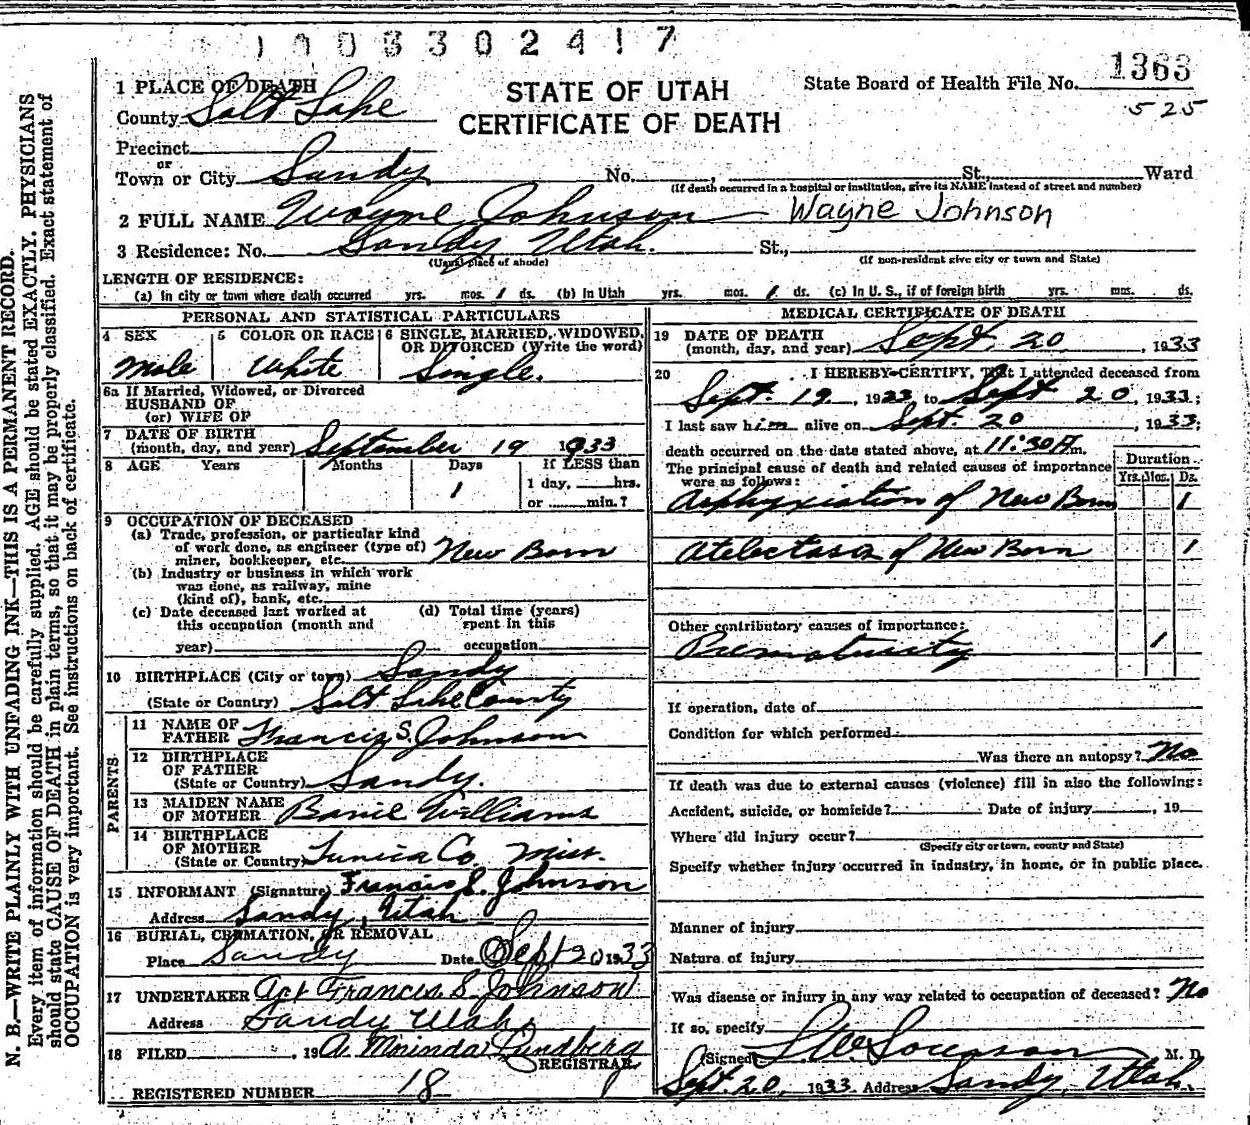 1003302417
1363
525
STATE OF UTAH
CERTIFICATE OF DEATH
State Board of Health File No.
1 PLACE OF DEATH
County Salt Lake
Precinct
or
Town or City Sandy No. , St., Ward
(If death occurred in a hospital or institution, give its NAME instead of street and number)
2 FULL NAME Wayne Johnson - Wayne Johnson
3 Residence: No. Sandy Utah. St.,
(Usual place of abode) (If non-resident give city or town and State)
LENGTH OF RESIDENCE:
(a) In city or town where death occurred yrs. mos. 1 ds. (b) In Utah yrs. mos. 1 ds. (c) In U. S., if of foreign birth yrs. mos. ds.
PERSONAL AND STATISTICAL PARTICULARS
4 SEX 5 COLOR OR RACE 6 SINGLE, MARRIED, WIDOWED, OR DIVORCED (Write the word)
Male White Single.
6a If Married, Widowed, or Divorced
HUSBAND OF
(or) WIFE OF
7 DATE OF BIRTH
(month, day, and year) September 19 1933
8 AGE Years Months Days If LESS than
1 1 day, hrs.
or min.?
9 OCCUPATION OF DECEASED
(a) Trade, profession, or particular kind
of work done, as engineer (type of)
miner, bookkeeper, etc. New Born
(b) Industry or business in which work
was done, as railway, mine
(kind of), bank, etc.
(c) Date deceased last worked at (d) Total time (years)
this occupation (month and spent in this
year) occupation
10 BIRTHPLACE (City or town) Sandy
(State or Country) Salt Lake County
PARENTS
11 NAME OF
FATHER Francis S. Johnson
12 BIRTHPLACE
OF FATHER
(State or Country) Sandy.
13 MAIDEN NAME
OF MOTHER Williams
14 BIRTHPLACE
OF MOTHER
(State or Country) Tunica Co. Miss.
15 INFORMANT (Signature) Francis S. Johnson
Address Sandy, Utah
16 BURIAL, CREMATION, OR REMOVAL
Place Sandy Date Sept 20 1933
17 UNDERTAKER Act Francis S Johnson
Address Sandy Utah,
18 FILED , 19 A. Morinda Lundberg
REGISTRAR
REGISTERED NUMBER 18
MEDICAL CERTIFICATE OF DEATH
19 DATE OF DEATH
(month, day, and year) Sept. 20, 1933
20 I HEREBY CERTIFY, That I attended deceased from
Sept. 19, 1933, to Sept 20, 1933;
I last saw him alive on Sept. 20, 1933;
death occurred on the date stated above, at 11:30 A m.
The principal cause of death and related causes of importance
were as follows:
Duration
Yrs. Mos. Ds.
Asphyxiation of New Born 1
Atelectasis of New Born 1
Other contributory causes of importance:
Prematurity 1
If operation, date of
Condition for which performed
Was there an autopsy? No
If death was due to external causes (violence) fill in also the following:
Accident, suicide, or homicide? Date of injury , 19
Where did injury occur?
(Specify city or town, county and State)
Specify whether injury occurred in industry, in home, or in public place.
Manner of injury
Nature of injury
Was disease or injury in any way related to occupation of deceased? No
If so, specify
(Signed) Sorenson M. D.
Sept. 20, 1933 Address Sandy, Utah.
N. B.—WRITE PLAINLY WITH UNFADING INK—THIS IS A PERMANENT RECORD.
Every item of information should be carefully supplied. AGE should be stated EXACTLY. PHYSICIANS
should state CAUSE OF DEATH in plain terms, so that it may be properly classified. Exact statement of
OCCUPATION is very important. See instructions on back of certificate.